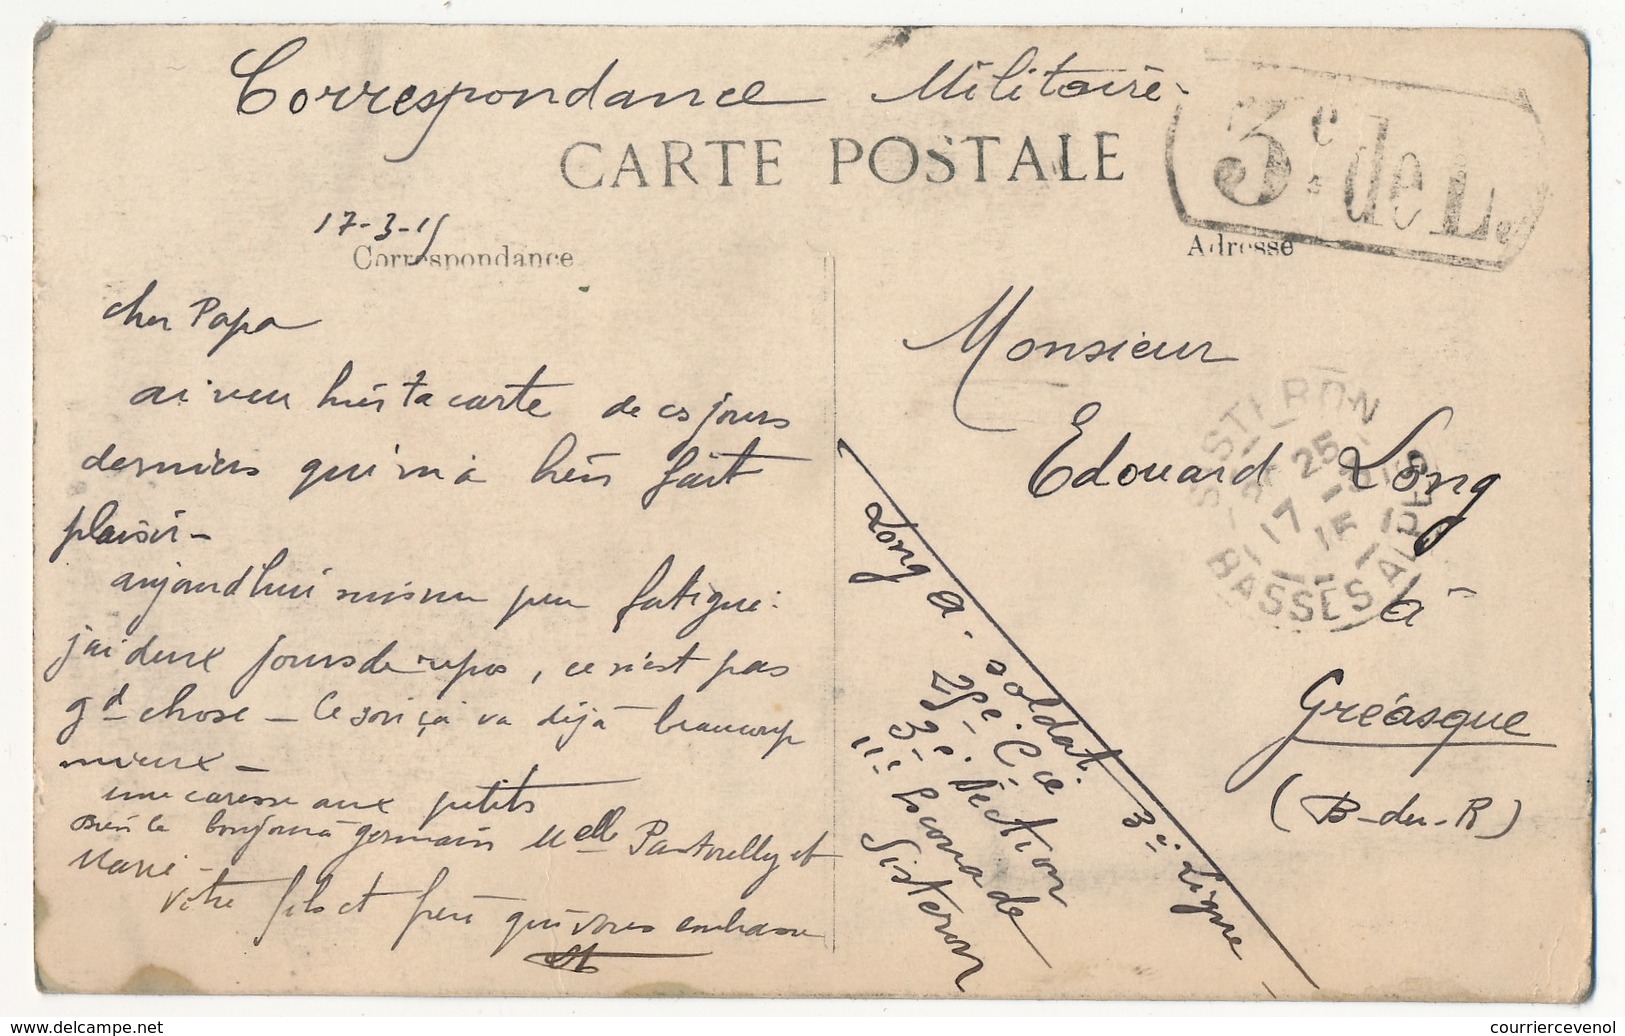 Correspondance Militaire
CARTE POSTALE
3e de L.
17-3-15
Correspondance
Adresse
cher Papa
ai reçu hier ta carte de ces jours
derniers qui m'a bien fait
plaisir -
aujourd'hui suis un peu fatigué :
j'ai deux jours de repos, ce n'est pas
gd chose - Ce soir ça va déjà beaucoup
mieux -
une caresse aux petits
Bien le bonjour à germain Melle Pastorelly et
Marie -
votre fils et frère qui vous embrasse
Monsieur
Edouard Long
à
Gréasque
(B-du-R)
SISTERON
25
17 -3
15
BASSES ALPES
Long a. soldat. 3e Ligne
25e Cie
3e Section
11e Escouade
Sisteron
delcampe.net
courriercevenol